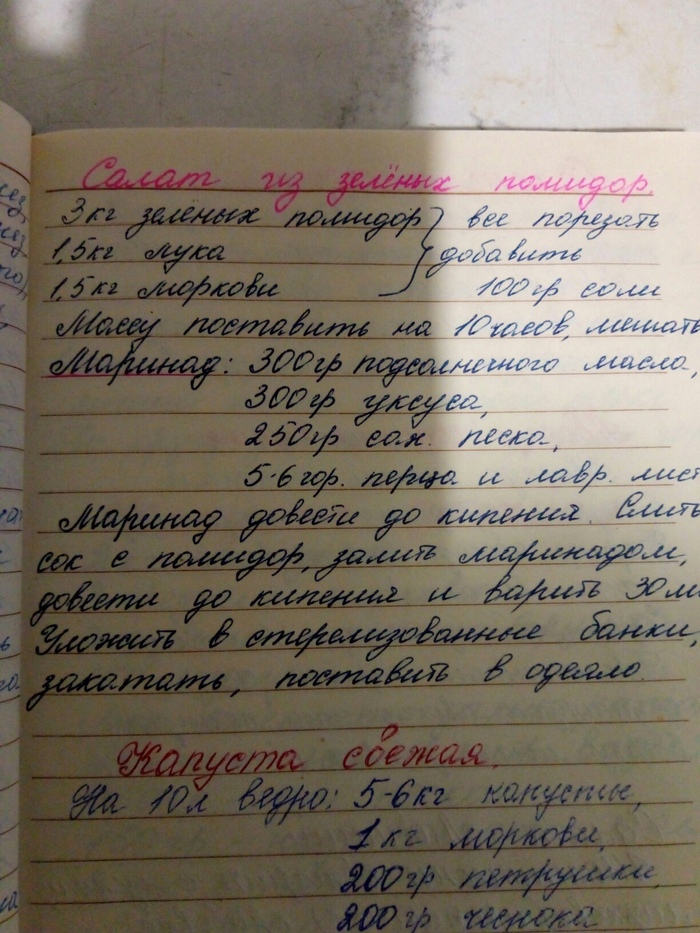 Салат из зелёных помидор.
3 кг зелёных помидор } все порезать
1,5 кг лука } добавить
1,5 кг моркови } 100 гр соли
Массу поставить на 10 часов, мешать
Маринад: 300 гр подсолнечного масла,
300 гр уксуса,
250 гр сах. песка,
5-6 гор. перца и лавр. лист
Маринад довести до кипения. Слить
сок с помидор, залить маринадом,
довести до кипения и варить 30 м
Уложить в стерелизованные банки,
закатать, поставить в одеяло.
Капуста свежая.
На 10 л ведро: 5-6 кг капусты,
1 кг моркови,
200 гр петрушки,
200 гр чеснока